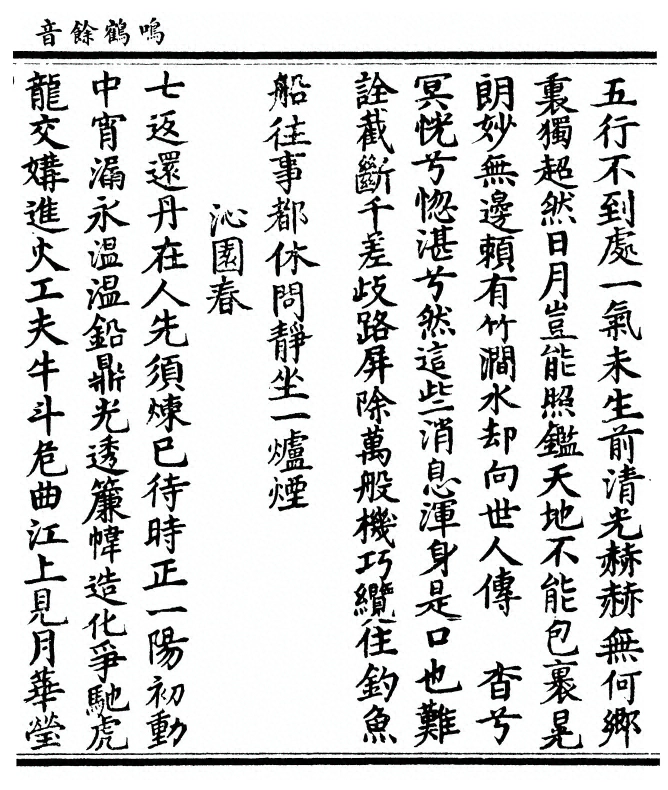 鳴鶴餘音
五行不到處一氣未生前清光赫赫無何鄉
裏獨超然日月豈能照鑑天地不能包裹晃
朗妙無邊賴有竹澗水却向世人傳　杳兮
冥恍兮惚湛兮然這些消息渾身是口也難
詮截斷千差歧路屏除萬般機巧纜住釣魚
船往事都休問靜坐一爐煙
沁園春
七返還丹在人先須煉己待時正一陽初動
中宵漏永溫溫鉛鼎光透簾幃造化爭馳虎
龍交媾進火工夫牛斗危曲江上見月華瑩